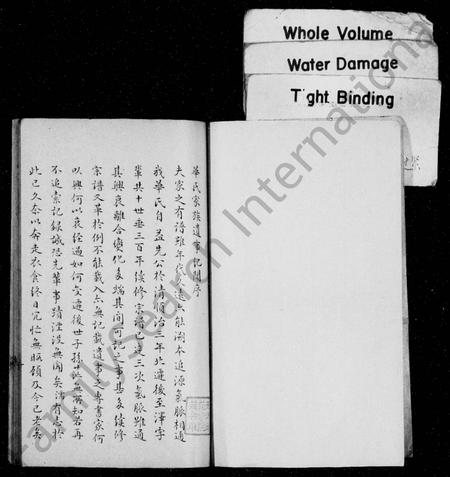 Whole Volume
Water Damage
Tight Binding
華氏家族遺事記聞序
夫家之有譜雖年代多遠能溯本追源氣脈相通
我華氏自益先公於清順治三年北遷後至澤字
輩共十世垂三百年續修宗譜已達三次氣脈雖通
其興衰離合變化多端其間可記之事甚多續修
宗譜又華於例不能載入亦無記載遺事之專書家何
以興何以衰經過如何變遷後世子孫茫無所知若再
不追索記錄誠恐先輩事蹟湮沒無聞矣余有志於
此已久奈以奔走衣食終日冗忙無暇顧及今已老矣
FamilySearch International